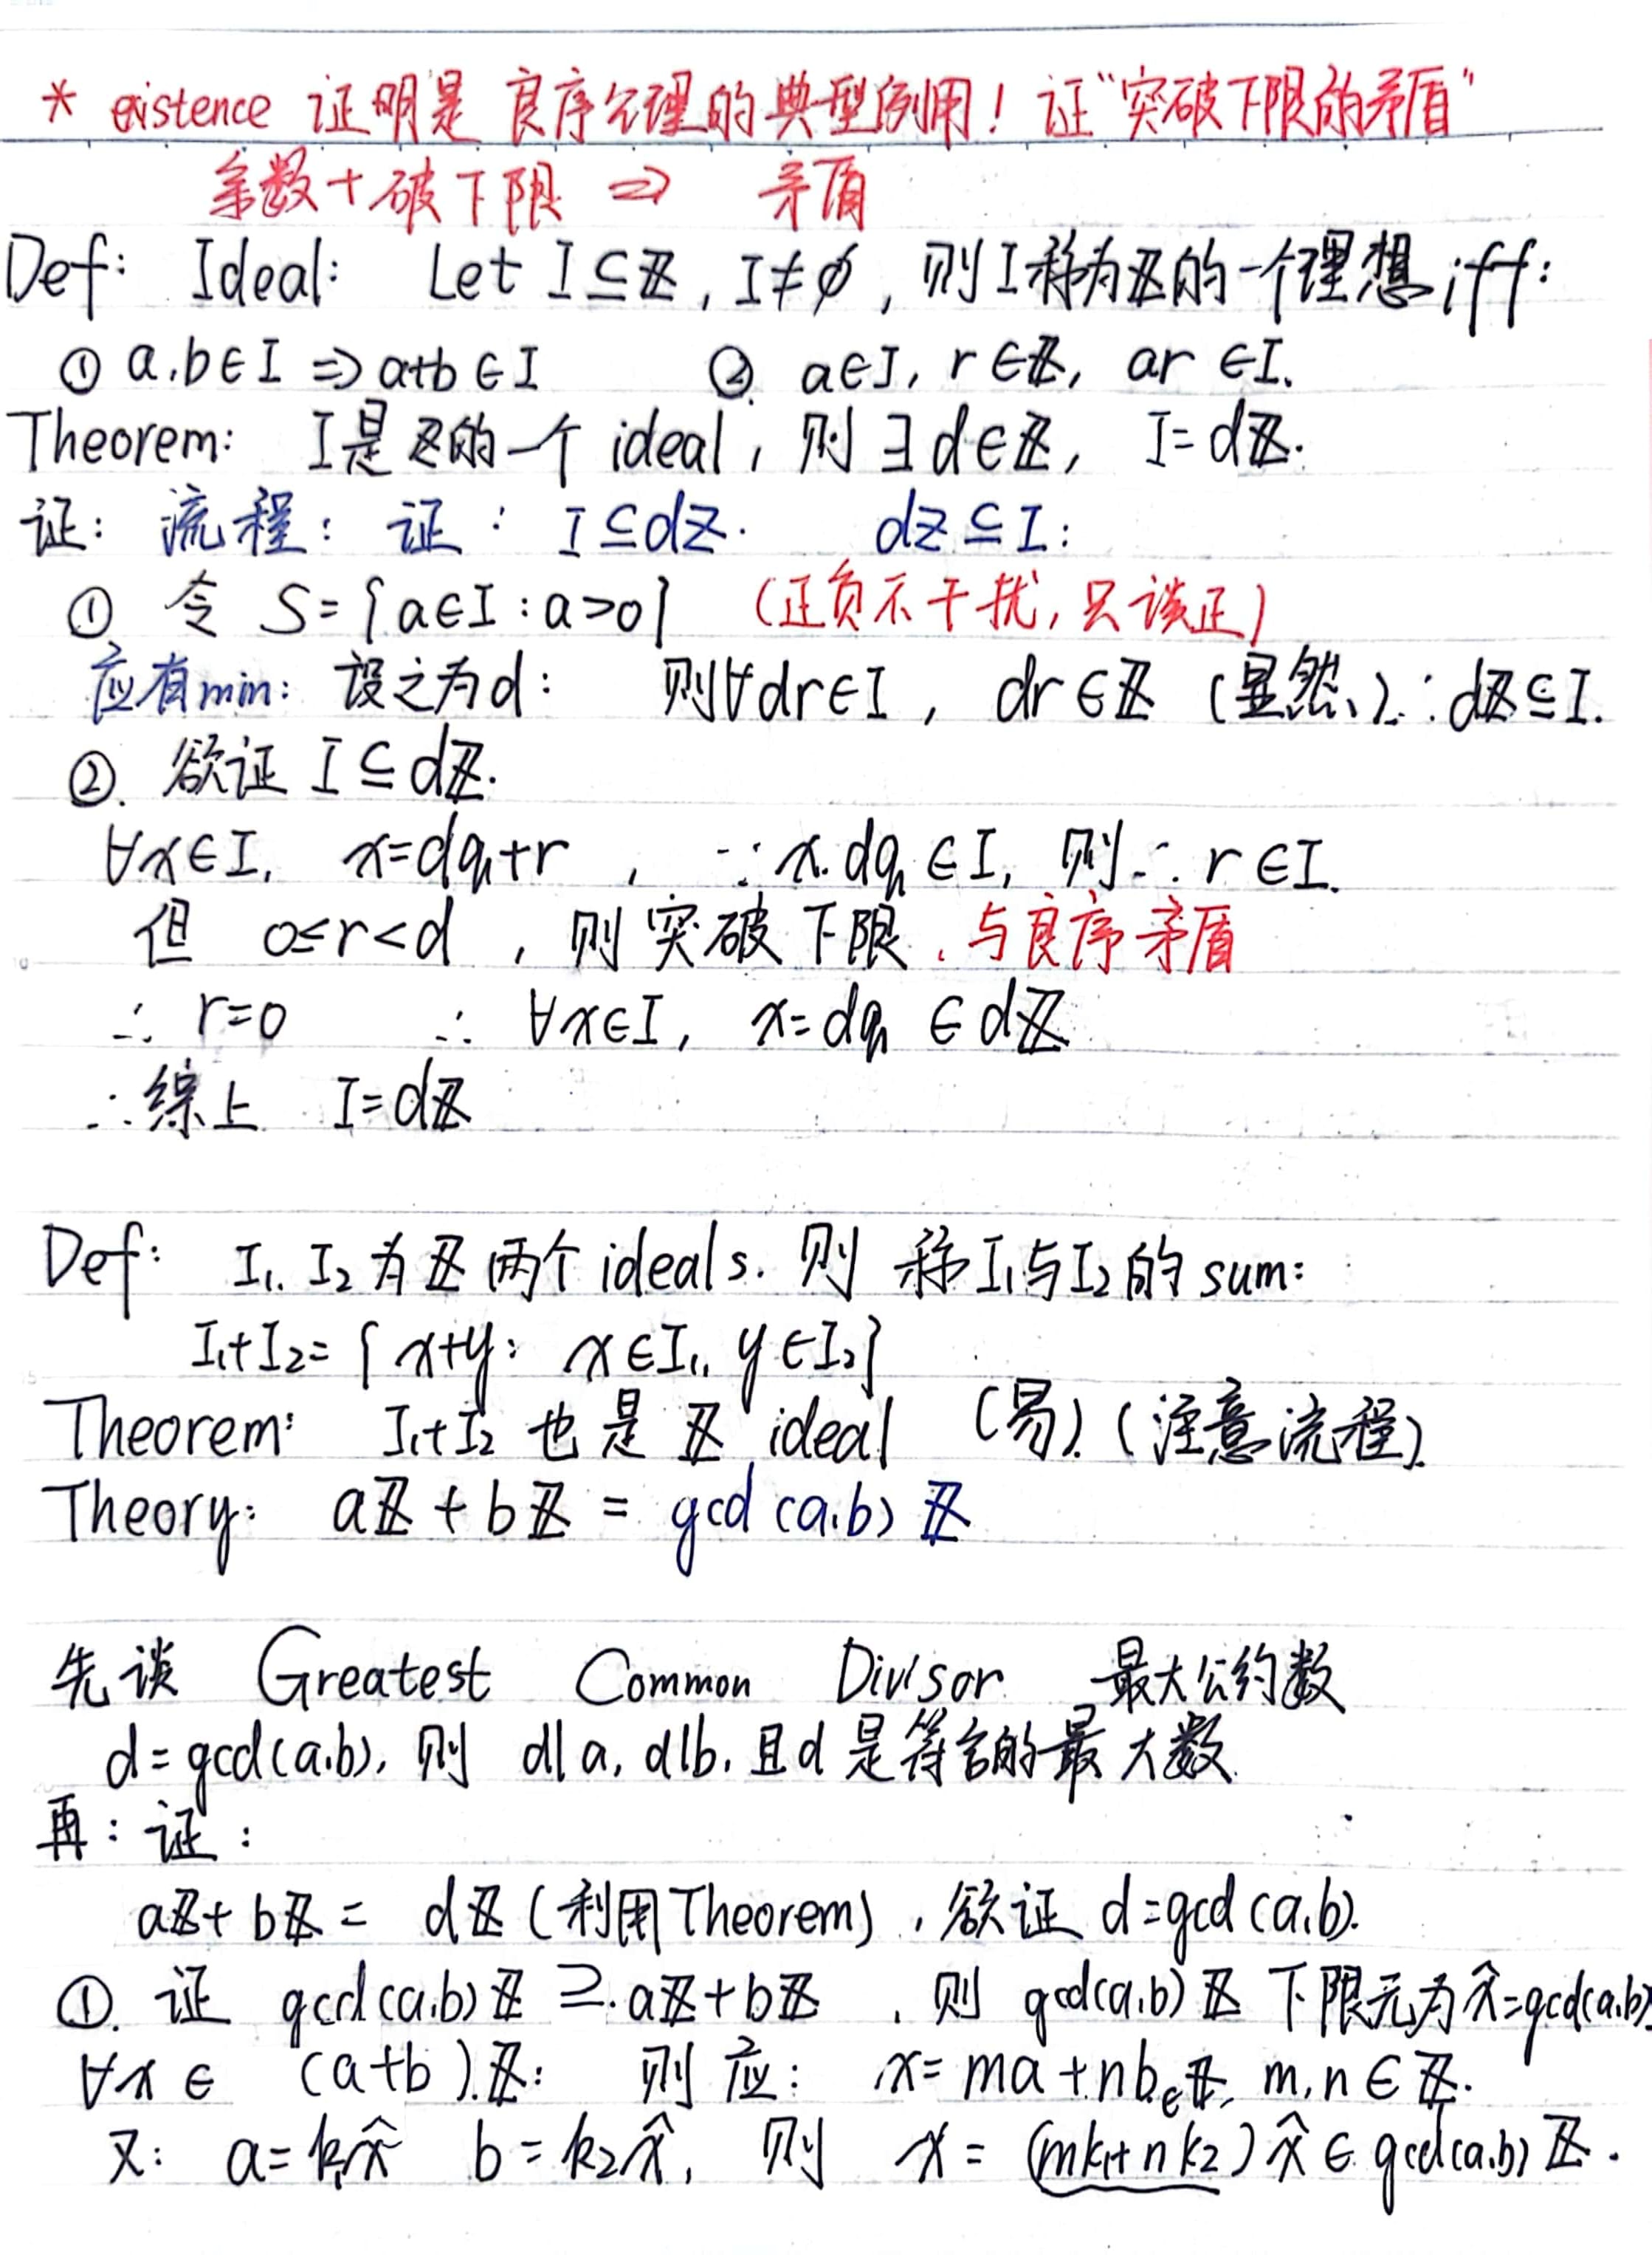 * existence 证明是 良序公理的典型例用! 证"突破下限的矛盾"
余数+破下限 ⇒ 矛盾
Def: Ideal: Let I⊆ℤ, I≠∅, 则I称为ℤ的一个理想 iff:
① a,b∈I ⇒ a+b∈I ② a∈I, r∈ℤ, ar∈I.
Theorem: I是ℤ的一个 ideal, 则 ∃d∈ℤ, I=dℤ.
证: 流程: 证: I⊆dℤ. dℤ⊆I:
① 令 S={a∈I:a>0} (正负不干扰, 只谈正)
应有min: 设之为d: 则∀dr∈I, dr∈ℤ (显然)∴dℤ⊆I.
②. 欲证 I⊆dℤ.
∀x∈I, x=dq₁+r, ∵x.dq₁∈I, 则∴r∈I.
但 0≤r<d, 则突破下限.与良序矛盾
∴ r=0 ∴ ∀x∈I, x=dq₁∈dℤ
∴综上 I=dℤ
Def: I₁. I₂为ℤ两个ideals. 则 称I₁与I₂的sum:
I₁+I₂={x+y: x∈I₁, y∈I₂}
Theorem: I₁+I₂ 也是 ℤ ideal (易).(注意流程).
Theory: aℤ+bℤ = gcd(a,b)ℤ
先谈 Greatest Common Divisor 最大公约数
d=gcd(a,b), 则 d|a, d|b. 且d是符合的最大数.
再: 证:
aℤ+bℤ= dℤ(利用Theorem), 欲证 d=gcd(a,b).
①. 证 gcd(a,b)ℤ⊇aℤ+bℤ, 则 gcd(a,b)ℤ 下限元为x̂=gcd(a,b)
∀x∈ (a+b)ℤ: 则应: x=ma+nb∈ℤ, m,n∈ℤ.
又: a=k₁x̂ b=k₂x̂, 则 x=(mk₁+nk₂)x̂∈gcd(a,b)ℤ.